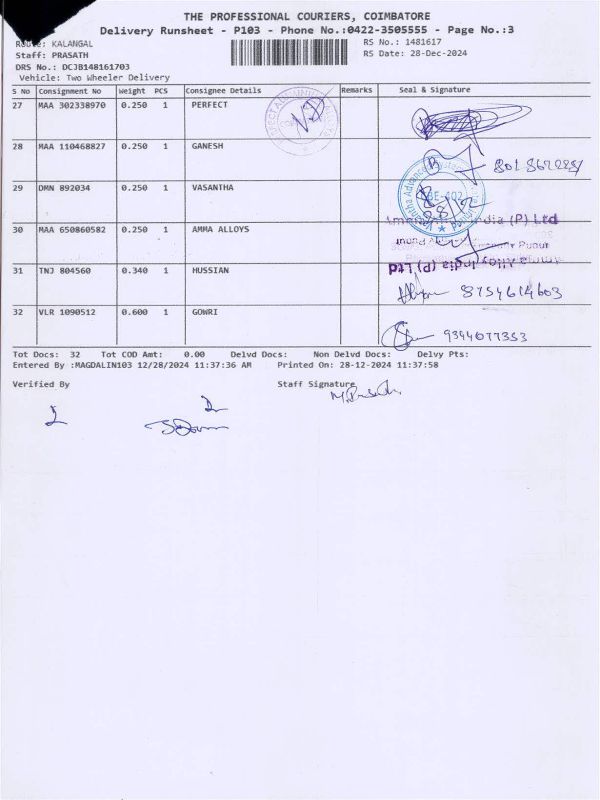 THE PROFESSIONAL COURIERS, COIMBATORE
Delivery Runsheet - P103 - Phone No.:0422-3505555 - Page No.:3
Route: KALANGAL
RS No.: 1481617
Staff: PRASATH
RS Date: 28-Dec-2024
DRS No.: DCJB148161703
Vehicle: Two Wheeler Delivery
S No Consignment No Weight PCS Consignee Details Remarks Seal & Signature
27 MAA 302338970 0.250 1 PERFECT
28 MAA 110468827 0.250 1 GANESH
29 DMN 892034 0.250 1 VASANTHA
30 MAA 650860582 0.250 1 AMMA ALLOYS
(P) Ltd
Amma Alloy India (P) Ltd
31 TNJ 804560 0.340 1 HUSSIAN
8754614603
32 VLR 1090512 0.600 1 GOWRI
9344077353
Tot Docs: 32 Tot COD Amt: 0.00 Delvd Docs: Non Delvd Docs: Delvy Pts:
Entered By :MAGDALIN103 12/28/2024 11:37:36 AM Printed On: 28-12-2024 11:37:58
Verified By Staff Signature
M.Prasath